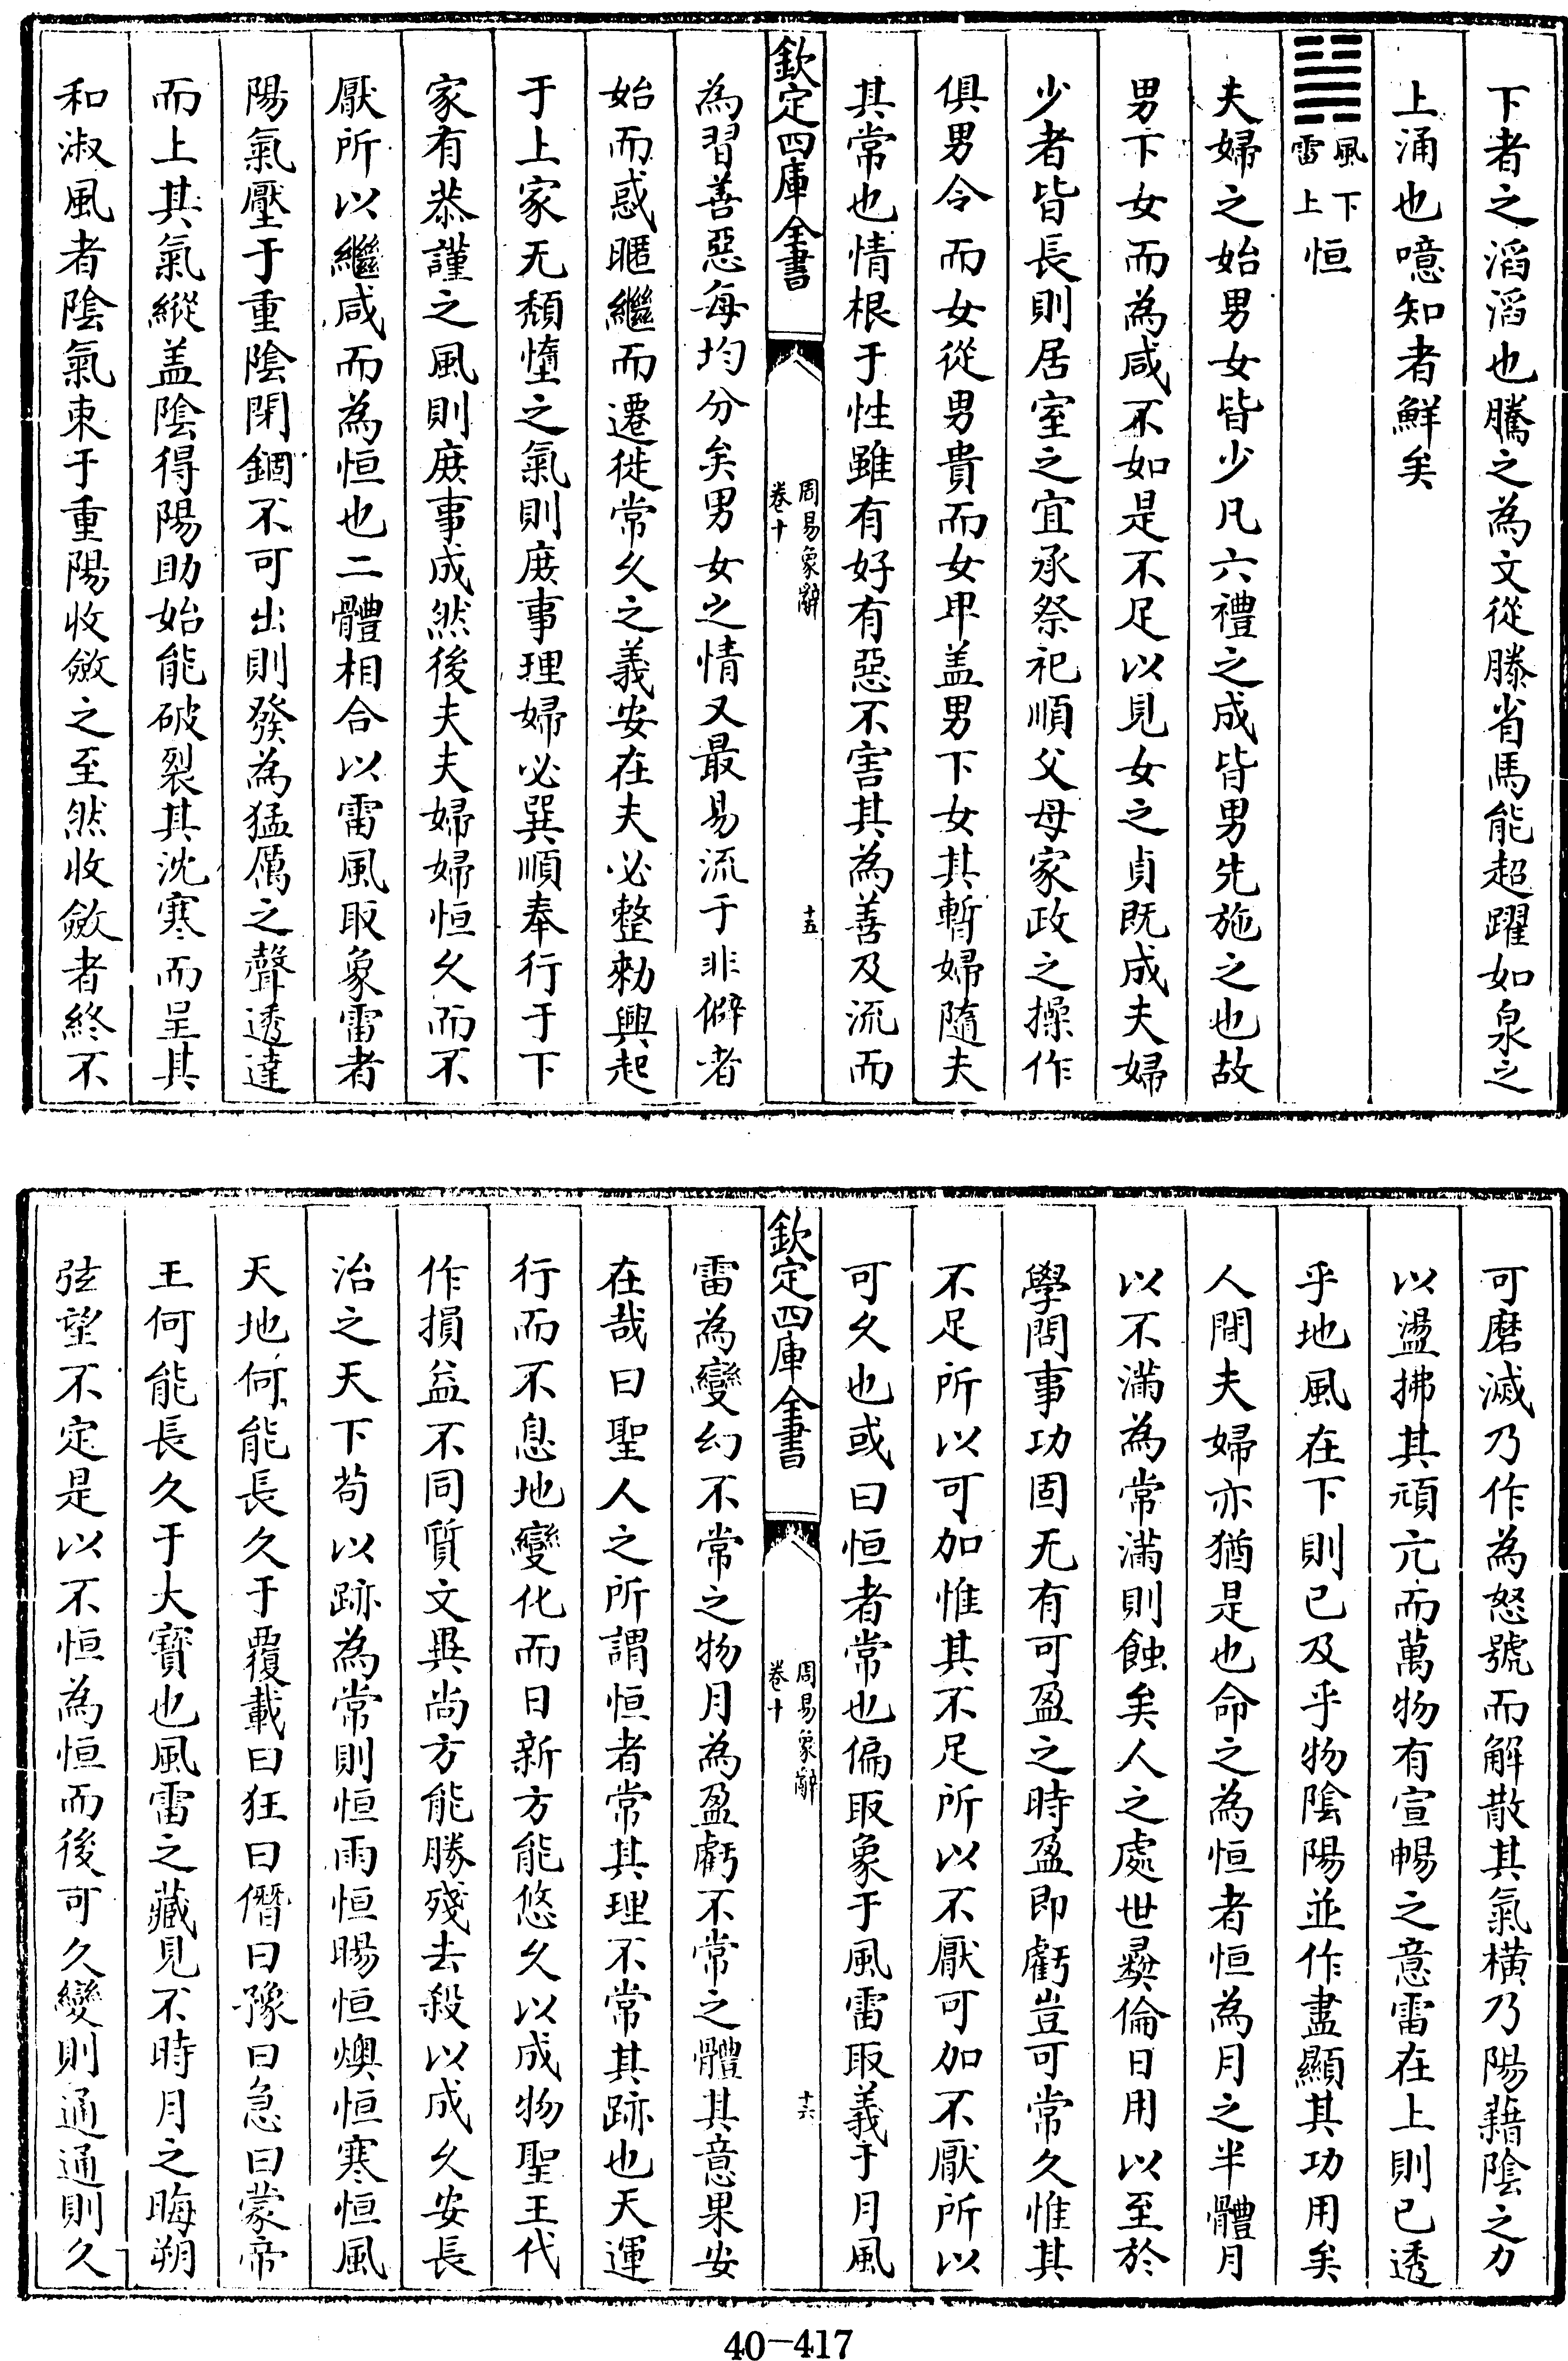 下者之滔滔也騰之為文從滕省馬能超躍如泉之
上涌也噫知者鮮矣
風下
雷上
恒
夫婦之始男女皆少凡六禮之成皆男先施之也故
男下女而為咸不如是不足以見女之貞既成夫婦
少者皆長則居室之宜承祭祀順父母家政之操作
俱男令而女從男貴而女卑盖男下女其暫婦隨夫
其常也情根于性雖有好有惡不害其為善及流而
欽定四庫全書
周易象辭
卷十
十五
為習善惡每均分矣男女之情又最易流于非僻者
始而惑暱繼而遷徙常久之義安在夫必整勑興起
于上家无頽墮之氣則庶事理婦必巽順奉行于下
家有恭謹之風則庶事成然後夫夫婦婦恒久而不
厭所以繼咸而為恒也二體相合以雷風取象雷者
陽氣壓于重陰閉錮不可出則發為猛厲之聲透達
而上其氣縱盖陰得陽助始能破裂其沈寒而呈其
和淑風者陰氣束于重陽收斂之至然收斂者終不
可磨滅乃作為怒號而解散其氣橫乃陽藉陰之力
以盪拂其頑亢而萬物有宣暢之意雷在上則已透
乎地風在下則已及乎物陰陽並作盡顯其功用矣
人間夫婦亦猶是也命之為恒者恒為月之半體月
以不滿為常滿則蝕矣人之處世彛倫日用以至於
學問事功固无有可盈之時盈即虧豈可常久惟其
不足所以可加惟其不足所以不厭可加不厭所以
可久也或曰恒者常也偏取象于風雷取義于月風
欽定四庫全書
周易象辭
卷十
十六
雷為變幻不常之物月為盈虧不常之體其意果安
在哉曰聖人之所謂恒者常其理不常其跡也天運
行而不息地變化而日新方能悠久以成物聖王代
作損益不同質文異尚方能勝殘去殺以成久安長
治之天下苟以跡為常則恒雨恒暘恒燠恒寒恒風
天地何能長久于覆載曰狂曰僭曰豫曰急曰蒙帝
王何能長久于大寶也風雷之藏見不時月之晦朔
弦望不定是以不恒為恒而後可久變則通通則久
40-417